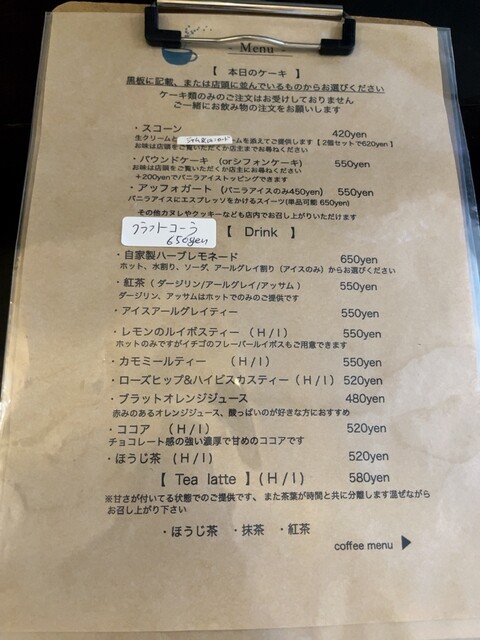 - Menu -
【 本日のケーキ 】
黒板に記載、または店頭に並んでいるものからお選びください
ケーキ類のみのご注文はお受けしておりません
ご一緒にお飲み物の注文をお願いします
・スコーン 420yen
生クリームと ームを添えてご提供します【 2個セットで620yen 】
お味は店頭をご覧いただくか店主までお尋ねください
・パウンドケーキ (orシフォンケーキ) 550yen
お味は店頭をご覧いただくか店主にお尋ねください
+200yenでバニラアイストッピングできます
・アッフォガート (バニラアイスのみ450yen) 550yen
バニラアイスにエスプレッソをかけるスイーツ(単品可能 650yen)
その他カヌレやクッキーなども店内でお召し上がりいただけます
クラフトコーラ
650yen
【 Drink 】
・自家製ハーブレモネード 650yen
ホット、水割り、ソーダ、アールグレイ割り (アイスのみ) からお選びください
・紅茶 ( ダージリン/アールグレイ/アッサム ) 550yen
ダージリン、アッサムはホットでのみのご提供です
・アイスアールグレイティー 550yen
・レモンのルイボスティー ( H / I ) 550yen
ホットのみですがイチゴのフレーバールイボスもご用意できます
・カモミールティー ( H / I ) 550yen
・ローズヒップ&ハイビスカスティー ( H / I ) 520yen
・ブラットオレンジジュース 480yen
赤みのあるオレンジジュース、酸っぱいのが好きな方におすすめ
・ココア ( H / I ) 520yen
チョコレート感の強い濃厚で甘めのココアです
・ほうじ茶 ( H / I ) 520yen
【 Tea latte 】( H / I ) 580yen
※甘さが付いてる状態でのご提供です、また茶葉が時間と共に分離します混ぜながら
お召し上がり下さい
・ほうじ茶 ・抹茶 ・紅茶
coffee menu ▶